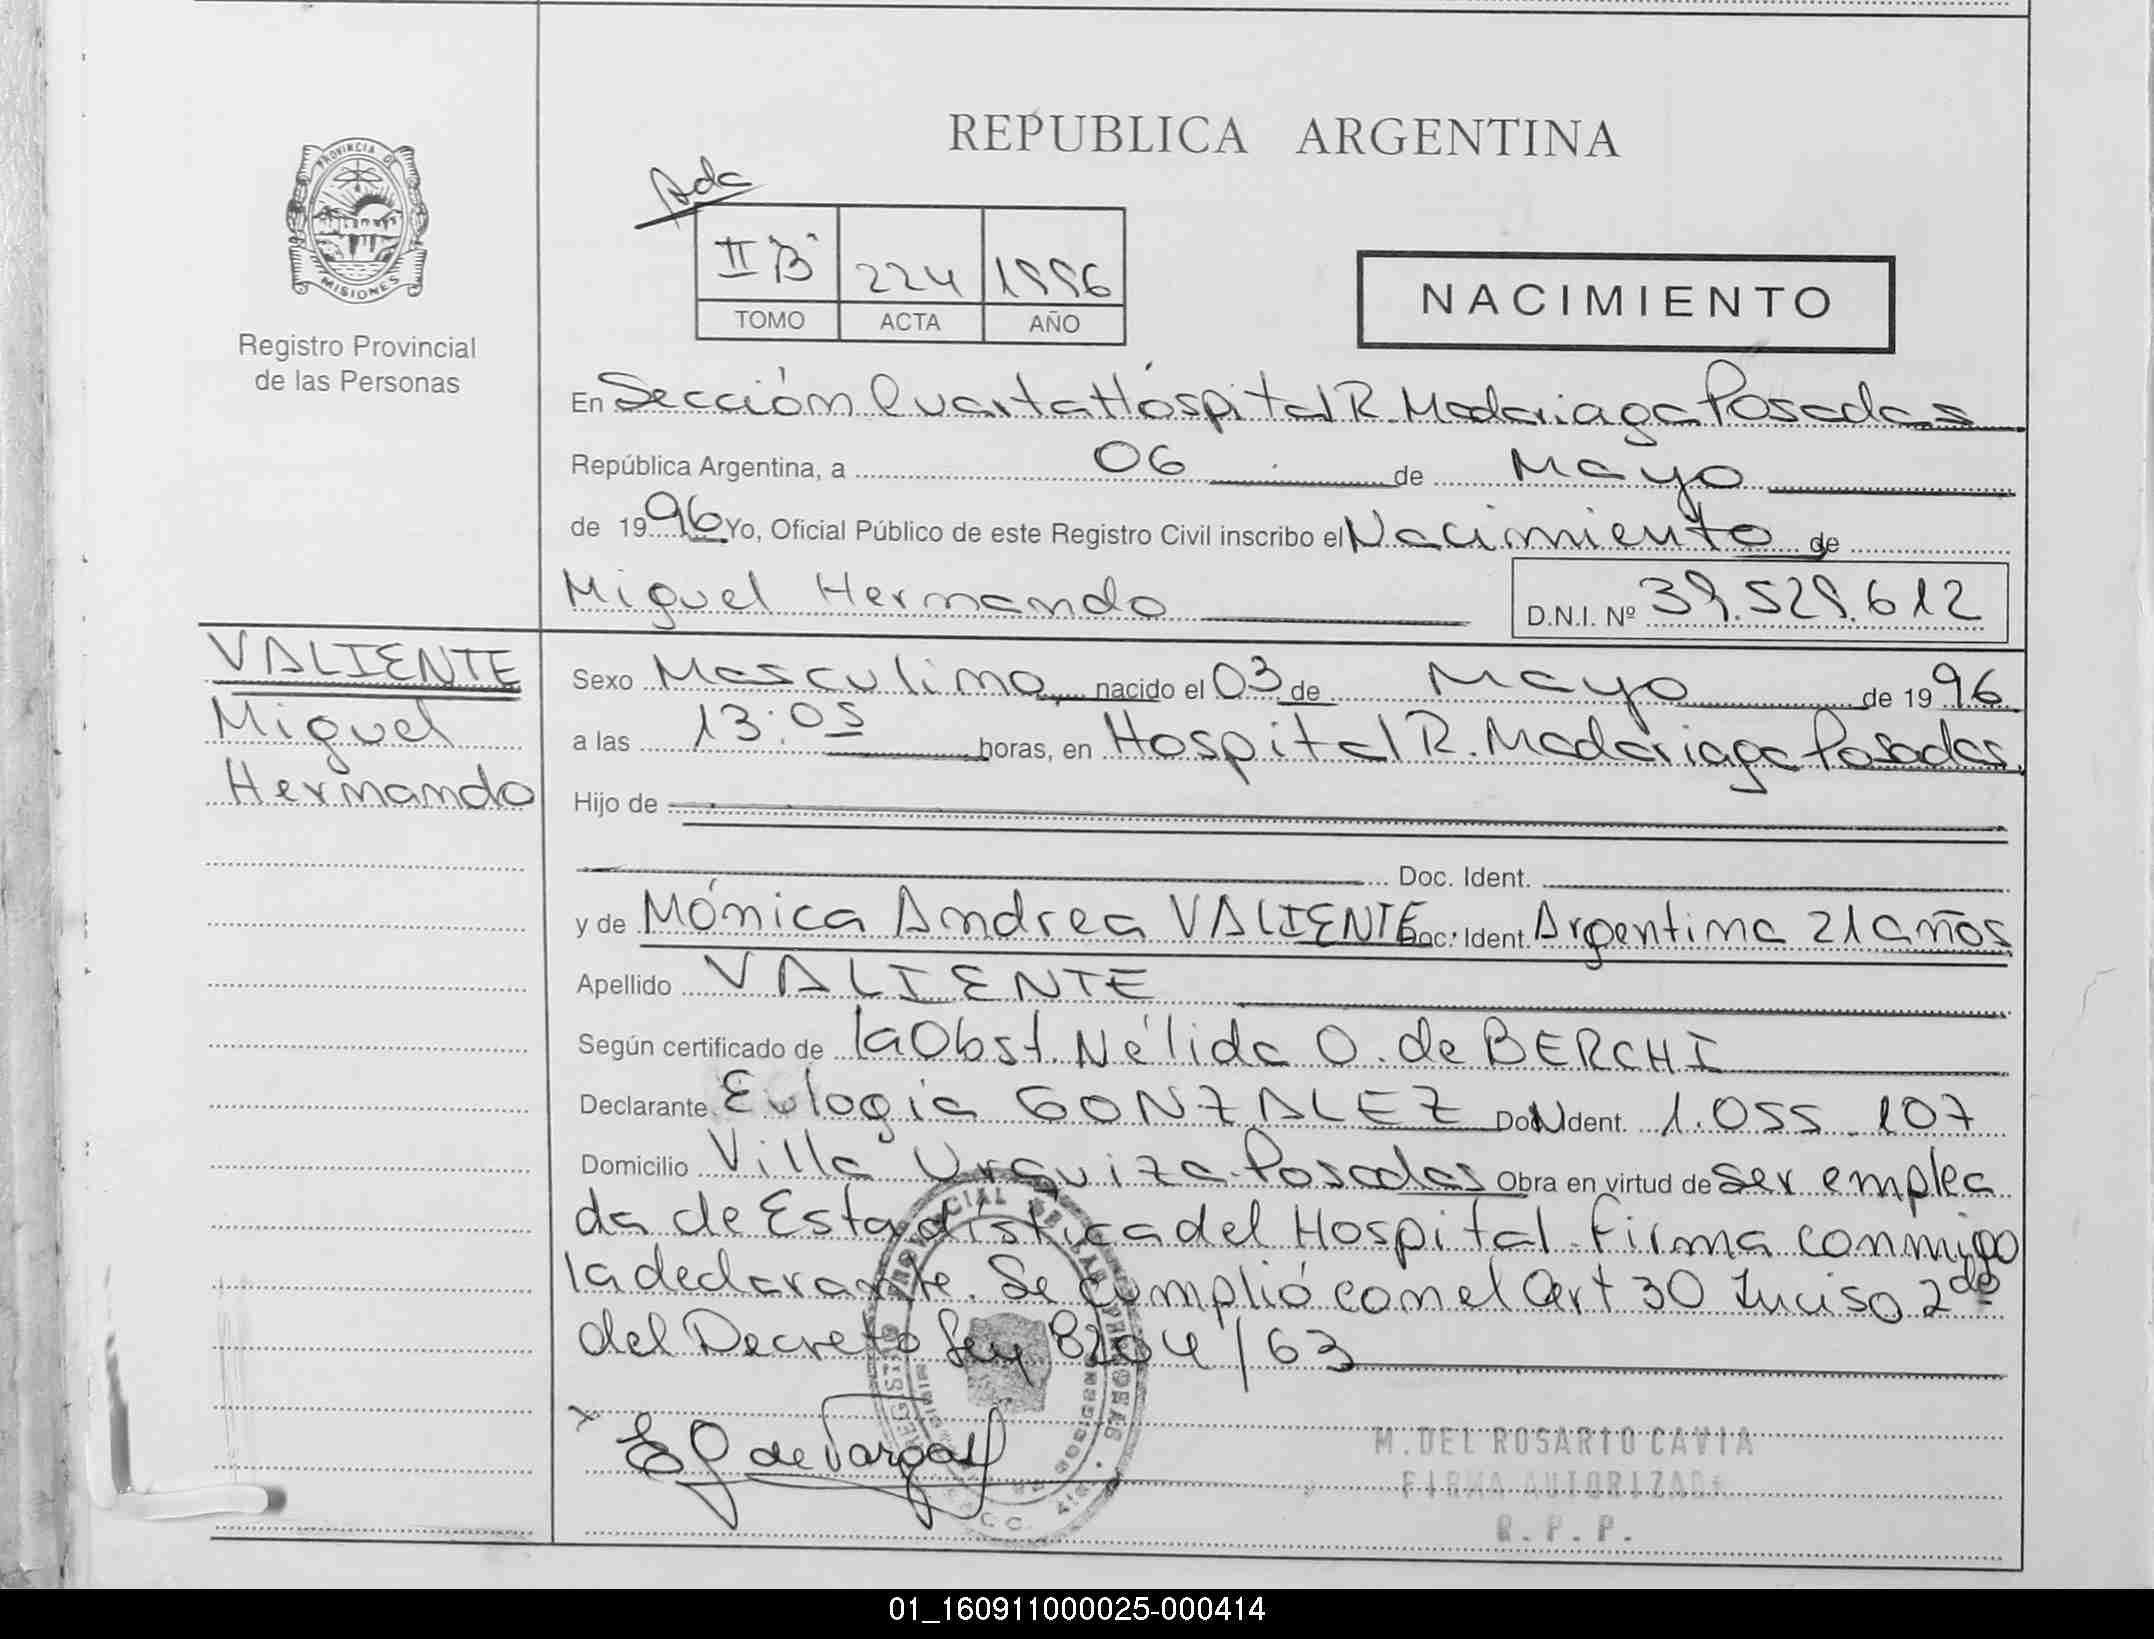 REPUBLICA ARGENTINA
PROVINCIA DE
MISIONES
Registro Provincial
de las Personas
Ada
II B 224 1996
TOMO ACTA AÑO
NACIMIENTO
En Sección Cuarta Hospital R. Madariaga Posadas
República Argentina, a 06 de Mayo
de 1996 Yo, Oficial Público de este Registro Civil inscribo el Nacimiento de
Miguel Hernando D.N.I. Nº 39.529.612
VALIENTE
Miguel
Hernando
Sexo Masculino, nacido el 03 de Mayo de 1996
a las 13:05 horas, en Hospital R. Madariaga Posadas.
Hijo de
Doc. Ident.
y de Mónica Andrea VALIENTE Doc. Ident. Argentina 21 años
Apellido VALIENTE
Según certificado de la Obst. Nélida O. de BERCHI
Declarante Eulogia GONZALEZ Doc. Ident. 1.055.107
Domicilio Villa Urquiza Posadas Obra en virtud de ser emplea
da de Estadística del Hospital. Firma conmigo
la declarante. Se cumplió con el Art 30 Inciso 2do
del Decreto Ley 8204/63
M. DEL ROSARIO CAVIA
FIRMA AUTORIZADA
R.P.P.
01_160911000025-000414